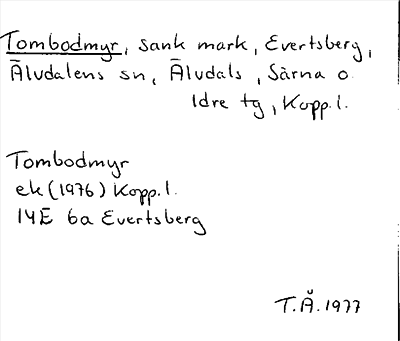 Tombodmyr, sank mark, Evertsberg,
Älvdalens sn, Älvdals, Särna o.
Idre tg, Kopp.l.
Tombodmyr
ek (1976) Kopp.l.
14E 6a Evertsberg
T.Å. 1977